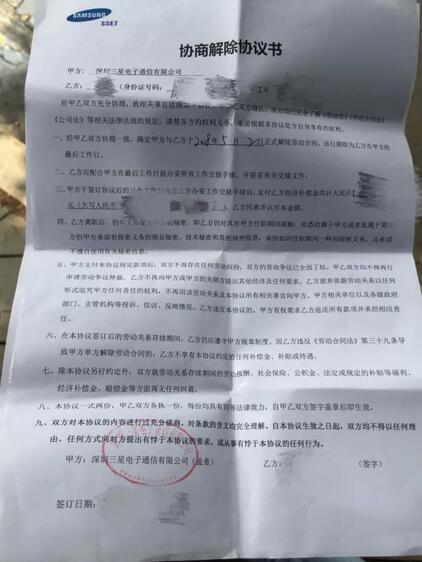 SAMSUNG
SSET
协商解除协议书
甲方：深圳三星电子通信有限公司
乙方：（身份证号码：
经甲乙双方充分协商，就相关事宜达成如下协议，甲乙双方确认，双方均已完全了解《劳动法》《劳动合同法》
《公司法》等相关法律法规的规定，清楚各方的权利义务，承诺根据本协议处分自身享有的权利。
一、经甲乙双方协商一致，确定甲方与乙方于2018年5月2日正式解除劳动合同，该日期即为乙方在甲方的
最后工作日。
二、乙方应配合甲方在最后工作日前办妥所有工作交接手续，并签妥有关交接文件。
三、甲方于签订协议后的三个工作日内且乙方办妥工作交接手续后，支付乙方经济补偿金共计人民币
元（大写人民币 乙方同意并认可本金额。
四、乙方离职后，仍 的秘密，即乙方仍对其在甲方任职期间接触、知悉的属于甲方或者虽属于第三
方但甲方承诺有保密义务的商业秘密、技术秘密和其他秘密信息，承担如同任职期间一样的保密义务，且承诺
不擅自使用有关秘密信息。
五、甲方支付本协议规定款项后，双方不再存在任何劳动纠纷，双方的劳动争议已全部完结，甲乙双方均不得再行
申请劳动争议仲裁，乙方不再向甲方或甲方的关联方提出其他经济及任何要求。乙方放弃依据劳动关系以任何
形式追究甲方任何责任的权利，不再因该劳动关系及本协议所有相关事宜向甲方、甲方相关单位以及各级政府
部门、主管机构等投诉、信访、反映情况。乙方违反本协议的，甲方有权要求乙方返还所有款项并承担相应责
任。
六、在本协议签订后的劳动关系存续期间，乙方仍应遵守甲方规章制度，因乙方违反《劳动合同法》第三十九条导
致甲方单方解除劳动合同的，乙方不享有本协议约定的任何补偿金、补贴或待遇。
七、除本协议另行约定外，双方就劳动关系存续期间的劳动报酬、社会保险、公积金、法定或规定的补贴等福利、
经济补偿金、赔偿金等方面再无任何纠葛。
八、本协议一式两份，甲乙双方各执一份，每份均具有同等法律效力，自甲乙双方签字盖章后即生效。
九、双方对本协议的内容进行过充分磋商，对条款的含义均完全理解，自本协议生效之日起，双方均不得以任何理
由、任何方式向对方提出有悖于本协议的要求，或从事有悖于本协议的任何行为。
甲方：深圳三星电子通信有限公司（盖章） 乙方： （签字）
签订日期：